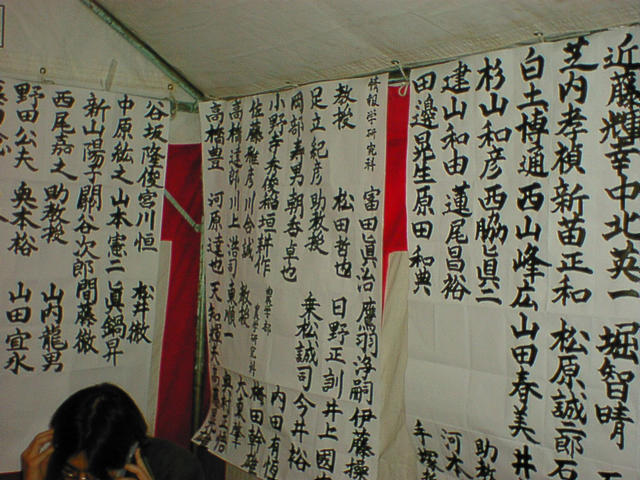 近藤輝幸 中北英一 堀智晴
芝内孝禎 新苗正和 松原誠二郎 石
白土博通 西山峰広 山田春美 井
杉山和彦 西脇眞二
建山和由 蓮尾昌裕 助教
田邊晃生 原田和典 河本
情報学研究科 富田眞治 鷹羽浄嗣 伊藤操
教授 松田哲也 日野正訓 井上國
足立紀彦 助教授 乗松誠司 今井裕
岡部寿男 朝香卓也 内田有恒
小野寺秀俊 稲垣耕作 農学部 農学研究科 梅田幹雄
佐藤雅彦 川合誠 教授 大東肇
高橋達郎 川上浩司 東順一 奥村正悟
高橋豊 河原達也 天知輝夫
谷坂隆俊 宮川恒 松井徹
中原紘之 山本憲二 眞鍋昇
新山陽子 關谷次郎 間藤徹
西尾嘉之 助教授 山内龍男
野田公夫 奥本裕 山田宜永